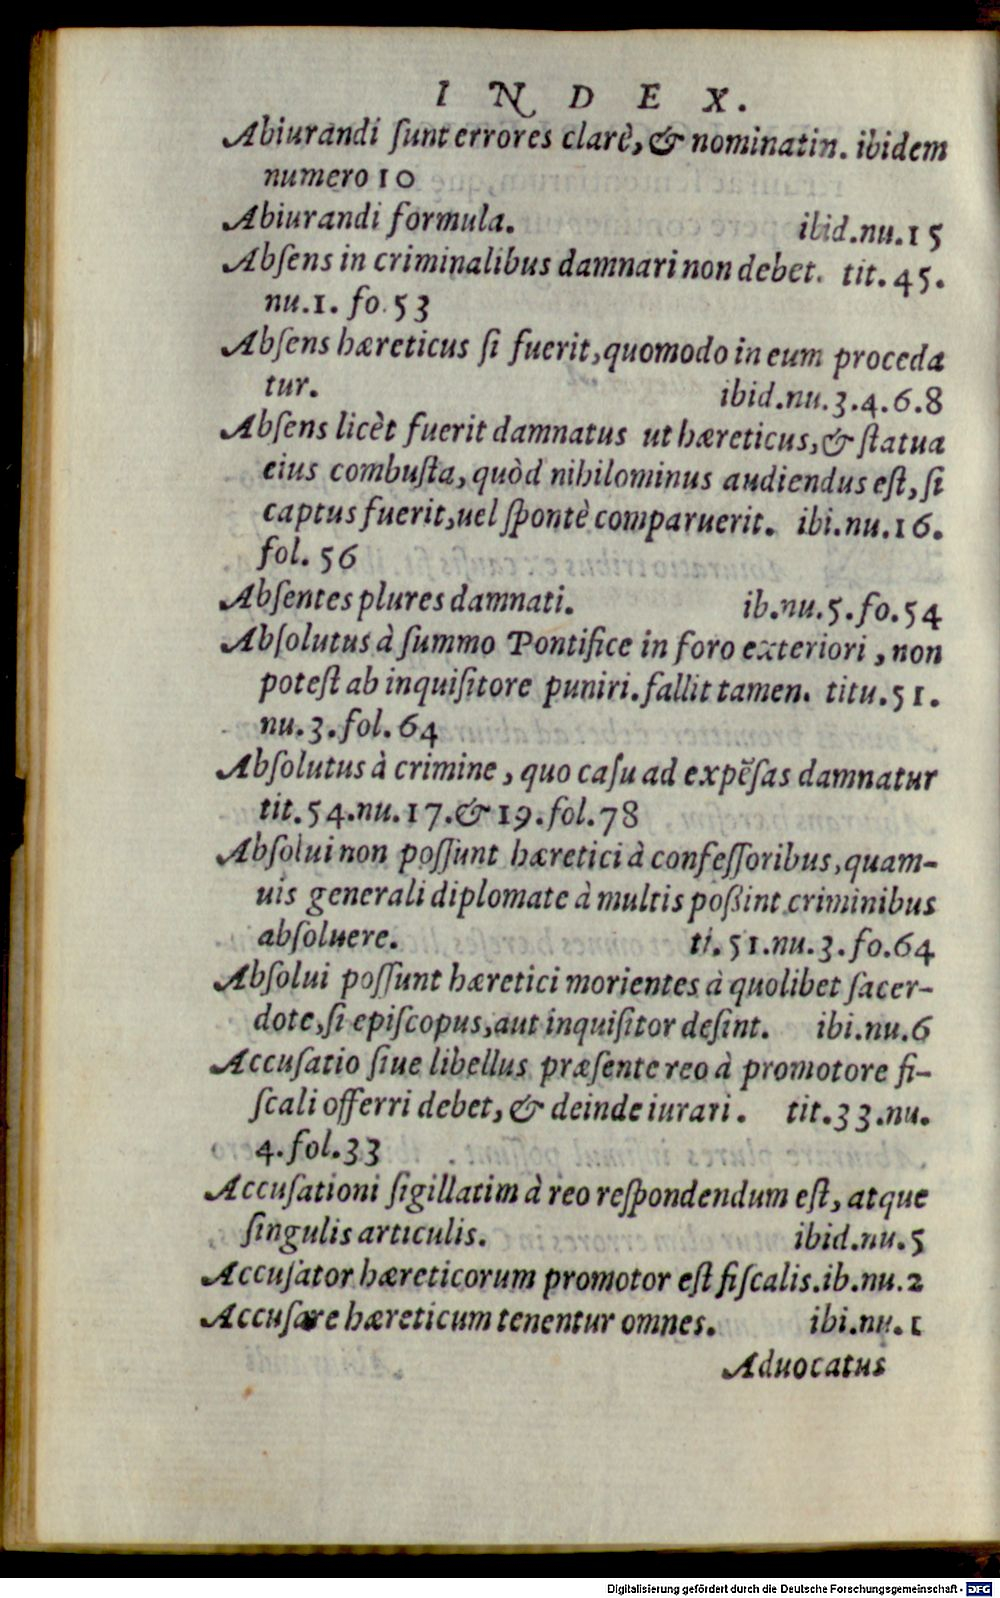 INDEX.
Abiurandi ſunt errores clarè, & nominatin. ibidem
numero 10
Abiurandi formula. ibid.nu.15
Abſens in criminalibus damnari non debet. tit. 45.
nu.1. fo.53
Abſens hæreticus ſi fuerit, quomodo in eum proceda
tur. ibid.nu.3.4.6.8
Abſens licèt fuerit damnatus ut hæreticus, & ſtatua
eius combuſta, quòd nihilominus audiendus eſt, ſi
captus fuerit, uel ſpontè comparuerit. ibi.nu.16.
fol. 56
Abſentes plures damnati. ib.nu.5.fo.54
Abſolutus à ſummo Pontifice in foro exteriori, non
poteſt ab inquiſitore puniri. fallit tamen. titu.51.
nu.3.fol.64
Abſolutus à crimine, quo caſu ad expẽſas damnatur
tit.54.nu.17.& 19.fol.78
Abſolui non poſſunt hæretici à confeſſoribus, quam-
uis generali diplomate à multis poßint criminibus
abſoluere. ti.51.nu.3.fo.64
Abſolui poſſunt hæretici morientes à quolibet ſacer-
dote, ſi epiſcopus, aut inquiſitor deſint. ibi.nu.6
Accuſatio ſiue libellus præſente reo à promotore fi-
ſcali offerri debet, & deinde iurari. tit.33.nu.
4.fol.33
Accuſationi ſigillatim à reo reſpondendum eſt, atque
ſingulis articulis. ibid.nu.5
Accuſator hæreticorum promotor eſt fiſcalis. ib.nu.2
Accuſare hæreticum tenentur omnes. ibi.nu.1
Aduocatus
Digitalisierung gefördert durch die Deutsche Forschungsgemeinschaft - DFG